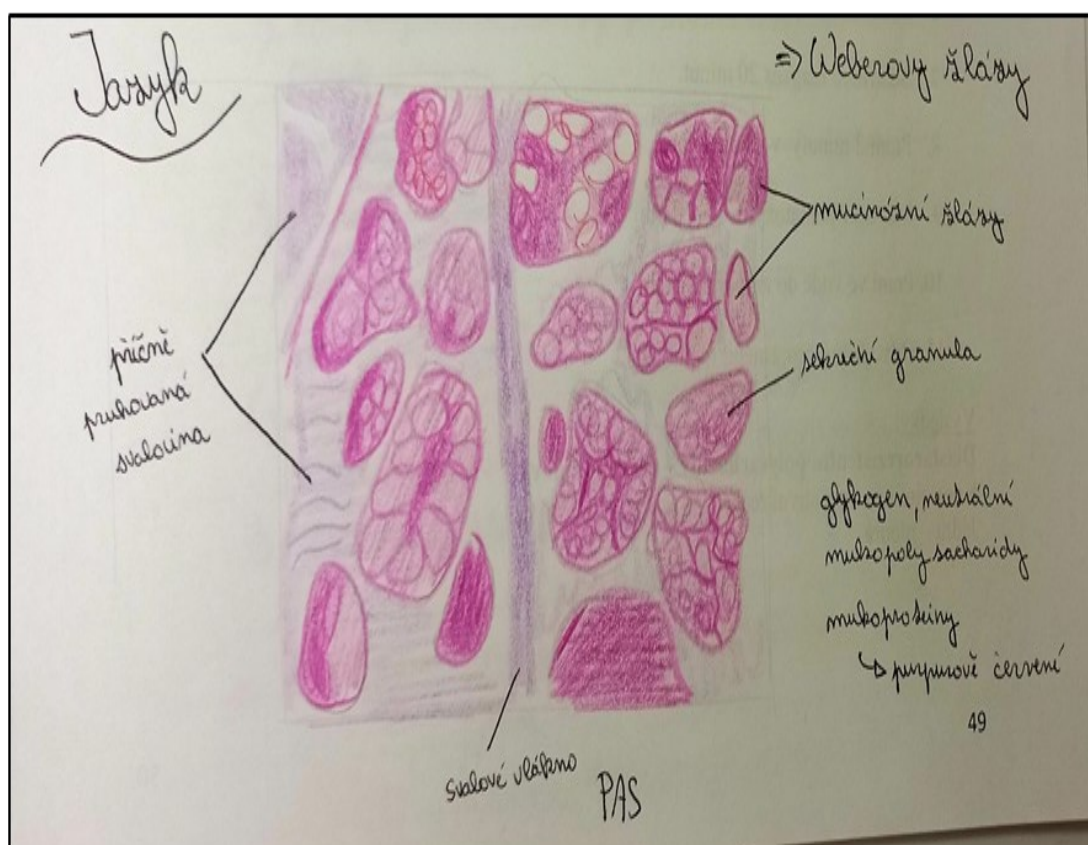 Jazyk
=> Weberovy žlázy
mucinózní žlázy
sekreční granula
příčně
pruhovaná
svalovina
glykogen, neutrální
mukopolysacharidy
mukoproteiny
↳ purpurově červení
49
svalové vlákno
PAS